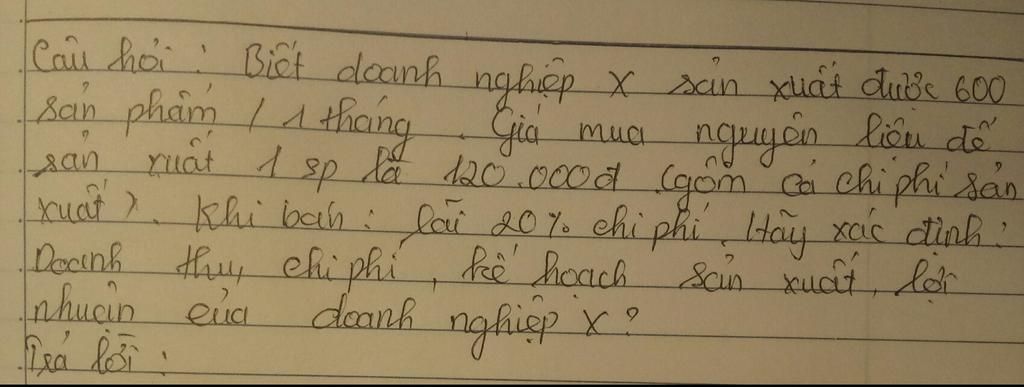 Câu hỏi : Biết doanh nghiệp X sản xuất được 600
sản phẩm / 1 tháng. Giá mua nguyên liệu để
sản xuất 1 sp là 120.000đ (gồm cả chi phí sản
xuất). Khi bán : lãi 20% chi phí. Hãy xác định :
Doanh thu, chi phí, kế hoạch sản xuất, lợi
nhuận của doanh nghiệp X?
Trả lời :